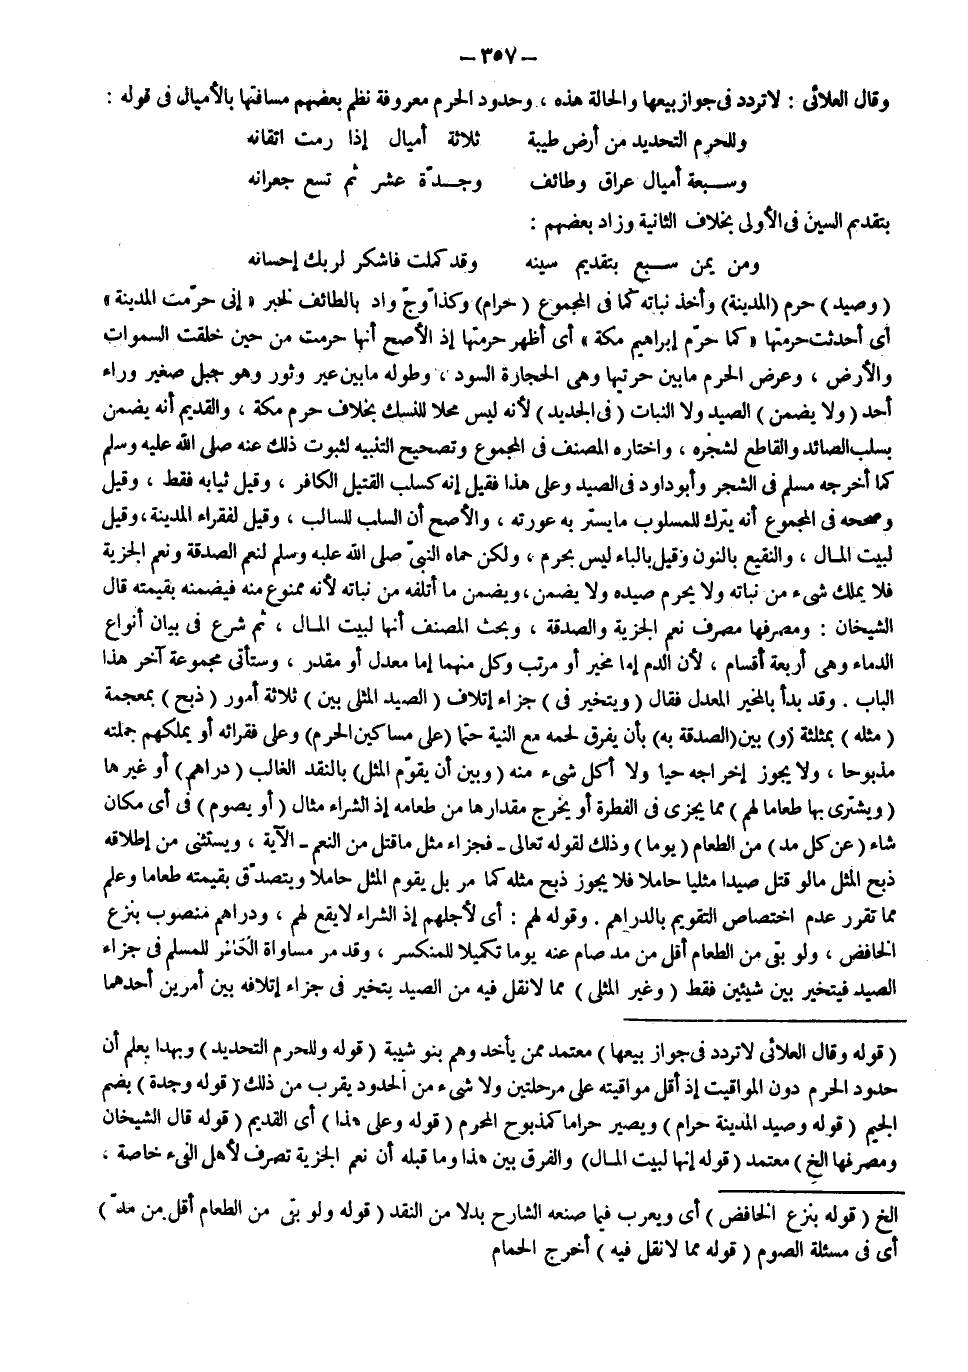 – ٣٥٧ –
وقال العلائى : لاتردد فى جواز بيعها والحالة هذه ، وحدود الحرم معروفة نظم بعضهم مسافتها بالأميال فى قوله :
وللحرم التحديد من أرض طيبة ثلاثة أميال إذا رمت اتقانه
وسبعة أميال عراق وطائف وجدّة عشر ثم تسع جعرانه
بتقديم السين فى الأولى بخلاف الثانية وزاد بعضهم :
ومن يمن سبع بتقديم سينه وقد كملت فاشكر لربك إحسانه
( وصيد ) حرم (المدينة) وأخذ نباته كما فى المجموع ( حرام) وكذا وجّ واد بالطائف لخبر « إنى حرّمت المدينة »
أى أحدثت حرمتها « كما حرّم إبراهيم مكة » أى أظهر حرمتها إذ الأصح أنها حرمت من حين خلقت السموات
والأرض ، وعرض الحرم مابين حرتيها وهى الحجارة السود ، وطوله مابين عير وثور وهو جبل صغير وراء
أحد ( ولا يضمن ) الصيد ولا النبات ( فى الجديد ) لأنه ليس محلا للنسك بخلاف حرم مكة ، والقديم أنه يضمن
بسلب الصائد والقاطع لشجره ، واختاره المصنف فى المجموع وتصحيح التنبيه لثبوت ذلك عنه صلى الله عليه وسلم
كما أخرجه مسلم فى الشجر وأبو داود فى الصيد وعلى هذا فقيل إنه كسلب القتيل الكافر ، وقيل ثيابه فقط ، وقيل
وصححه فى المجموع أنه يترك للمسلوب مايستر به عورته ، والأصح أن السلب للسالب ، وقيل لفقراء المدينة ، وقيل
لبيت المال ، والنقيع بالنون وقيل بالباء ليس بحرم ، ولكن حماه النبىّ صلى الله عليه وسلم لنعم الصدقة ونعم الجزية
فلا يملك شىء من نباته ولا يحرم صيده ولا يضمن ، ويضمن ما أتلفه من نباته لأنه ممنوع منه فيضمنه بقيمته قال
الشيخان : ومصرفها مصرف نعم الجزية والصدقة ، وبحث المصنف أنها لبيت المال ، ثم شرع فى بيان أنواع
الدماء وهى أربعة أقسام ، لأن الدم إما مخير أو مرتب وكل منهما إما معدل أو مقدر ، وستأتى مجموعة آخر هذا
الباب . وقد بدأ بالمخير المعدل فقال ( ويتخير فى ) جزاء إتلاف ( الصيد المثلى بين ) ثلاثة أمور ( ذبح ) بمعجمة
( مثله ) بمثلثة (و) بين (الصدقة به) بأن يفرق لحمه مع النية حتما (على مساكين الحرم) وعلى فقرائه أو يملكهم جملته
مذبوحا ، ولا يجوز إخراجه حيا ولا أكل شىء منه ( وبين أن يقوّم المثل) بالنقد الغالب ( دراهم ) أو غيرها
( ويشترى بها طعاما لهم ) مما يجزى فى الفطرة أو يخرج مقدارها من طعامه إذ الشراء مثال ( أو يصوم ) فى أى مكان
شاء ( عن كل مد ) من الطعام ( يوما ) وذلك لقوله تعالى ـ فجزاء مثل ماقتل من النعم ـ الآية ، ويستثنى من إطلاقه
ذبح المثل مالو قتل صيدا مثليا حاملا فلا يجوز ذبح مثله كما مر بل يقوم المثل حاملا ويتصدّق بقيمته طعاما وعلم
مما تقرر عدم اختصاص التقويم بالدراهم . وقوله لهم : أى لأجلهم إذ الشراء لايقع لهم ، ودراهم منصوب بنزع
الخافض ، ولو بقى من الطعام أقل من مد صام عنه يوما تكميلا للمنكسر ، وقد مر مساواة الكافر للمسلم فى جزاء
الصيد فيتخير بين شيئين فقط ( وغير المثلى ) مما لانقل فيه من الصيد يتخير فى جزاء إتلافه بين أمرين أحدهما
( قوله وقال العلائى لاتردد فى جواز بيعها ) معتمد ممن يأخد وهم بنو شيبة ( قوله وللحرم التحديد ) وبهدا يعلم أن
حدود الحرم دون المواقيت إذ أقل مواقيته على مرحلتين ولا شىء من الحدود يقرب من ذلك ( قوله وجدة ) بضم
الجيم ( قوله وصيد المدينة حرام ) ويصير حراما كمذبوح المحرم ( قوله وعلى هذا ) أى القديم ( قوله قال الشيخان
ومصرفها الخ ) معتمد ( قوله إنها لبيت المال) والفرق بين هذا وما قبله أن نعم الجزية تصرف لأهل الفىء خاصة ،
الخ ( قوله بنزع الخافض ) أى ويعرب فيما صنعه الشارح بدلا من النقد ( قوله ولو بقى من الطعام أقل من مدّ )
أى فى مسئلة الصوم ( قوله مما لانقل فيه ) أخرج الحمام